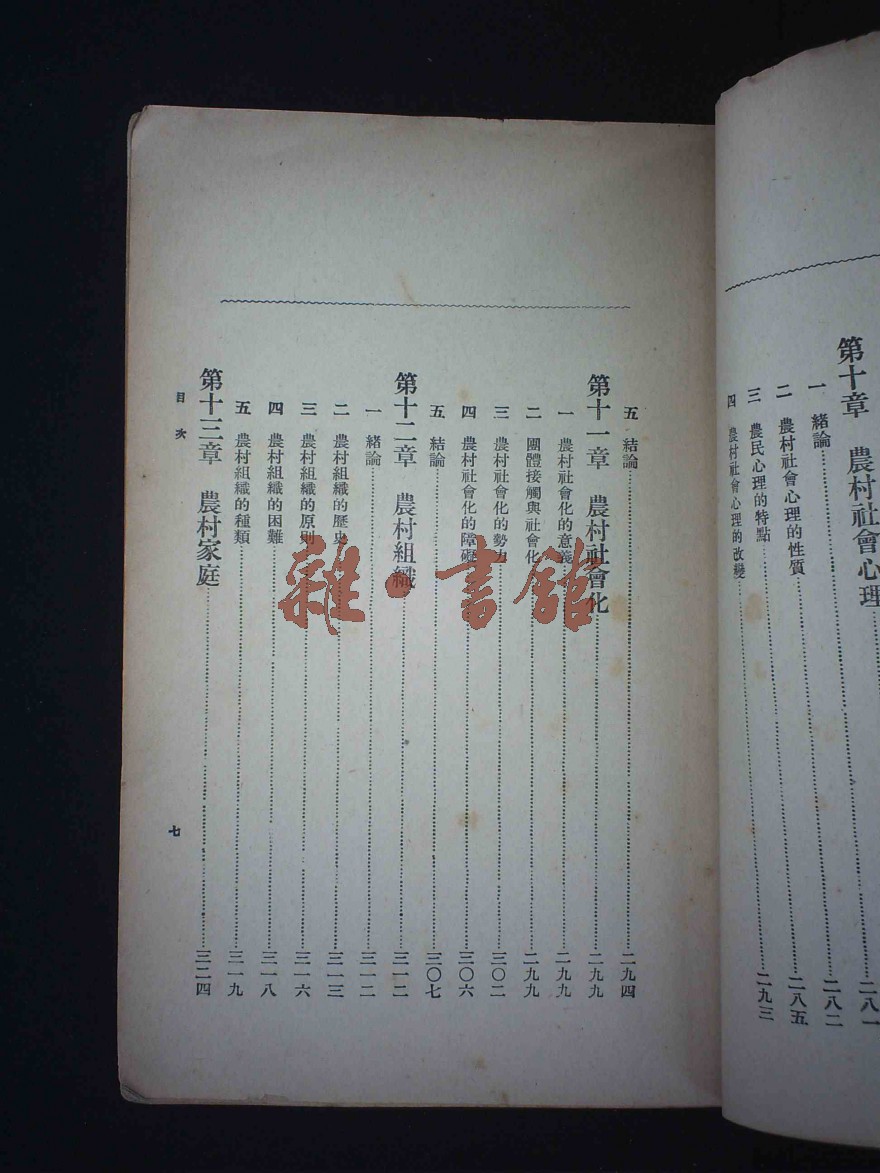 第十章 農村社會心理 二八一
一 緒論 二八二
二 農村社會心理的性質 二八五
三 農民心理的特點 二九三
四 農村社會心理的改變
五 結論 二九四
第十一章 農村社會化 二九九
一 農村社會化的意義 二九九
二 團體接觸與社會化 二九九
三 農村社會化的勢力 三〇二
四 農村社會化的障礙 三〇六
五 結論 三〇七
第十二章 農村組織 三一二
一 緒論 三一二
二 農村組織的歷史 三一三
三 農村組織的原則 三一六
四 農村組織的困難 三一八
五 農村組織的種類 三一九
第十三章 農村家庭 三二四
目次
七
雜·書館